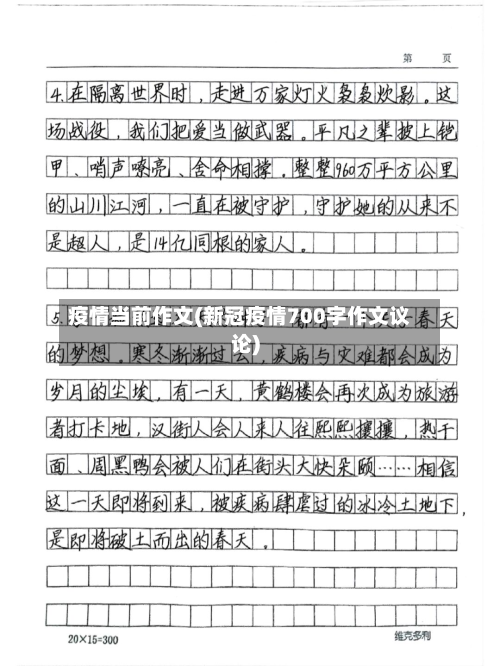 第 页
4.在隔离世界时，走进万家灯火袅袅炊影。这
场战役，我们把爱当做武器。平凡之辈披上铠
甲、哨声嘹亮、舍命相撑。整整960万平方公里
的山川江河，一直在被守护，守护她的从来不
是超人，是14亿同根的家人。
疫情当前作文(新冠疫情700字作文议
论)
5. 春天
的梦想。寒冬渐渐过去，疾病与灾难都会成为
岁月的尘埃，有一天，黄鹤楼会再次成为旅游
者打卡地，汉街人会人来人往熙熙攘攘，热干
面、周黑鸭会被人们在街头大快朵颐……相信
这一天即将到来，被疾病肆虐过的冰冷土地下，
是即将破土而出的春天。
20×15=300
维克多利